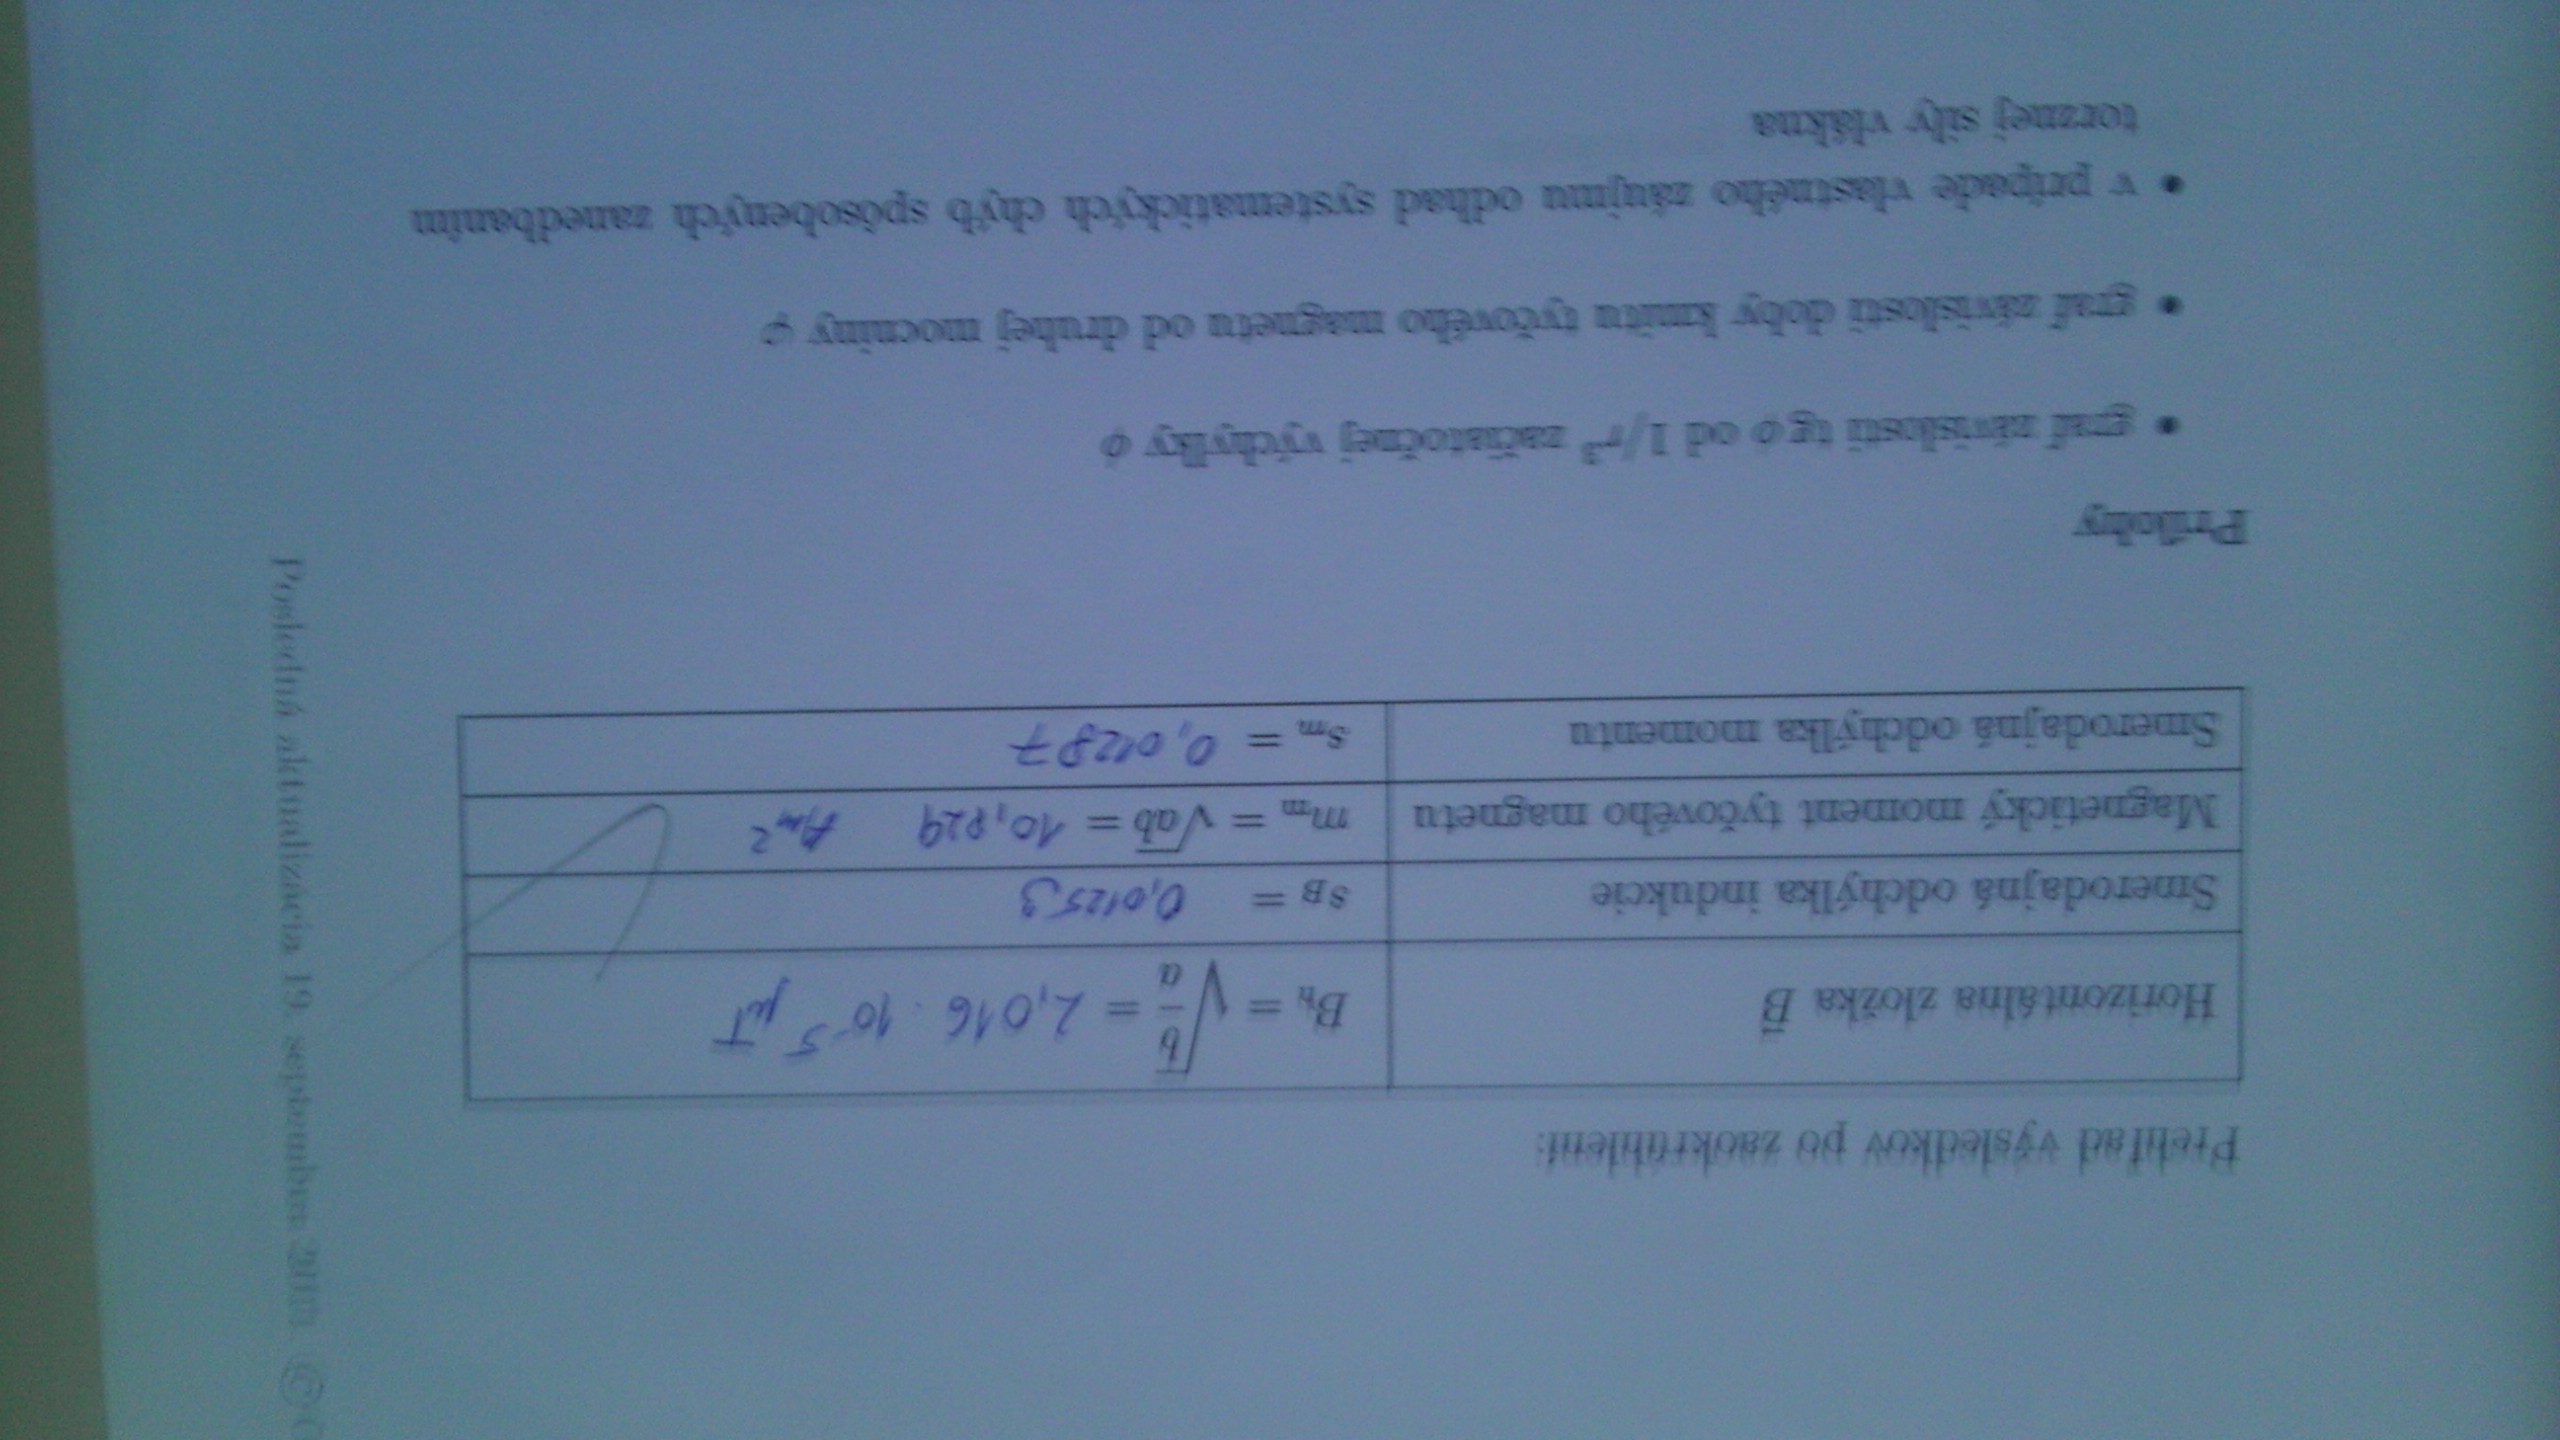 Prehľad výsledkov po zaokrúhlení:
Horizontálna zložka B⃗ B_h = √(b/a) = 2,016 · 10⁻⁵ μT
Smerodajná odchýlka indukcie s_B = 0,01253
Magnetický moment tyčového magnetu m_m = √ab = 10,829 Am²
Smerodajná odchýlka momentu s_m = 0,01287
Prílohy
• graf závislosti tg φ od 1/r³ začiatočnej výchylky φ
• graf závislosti doby kmitu tyčového magnetu od druhej mocniny φ
• v prípade vlastného záujmu odhad systematických chýb spôsobených zanedbaním
torznej sily vlákna
Posledná aktualizácia 19. septembra ©